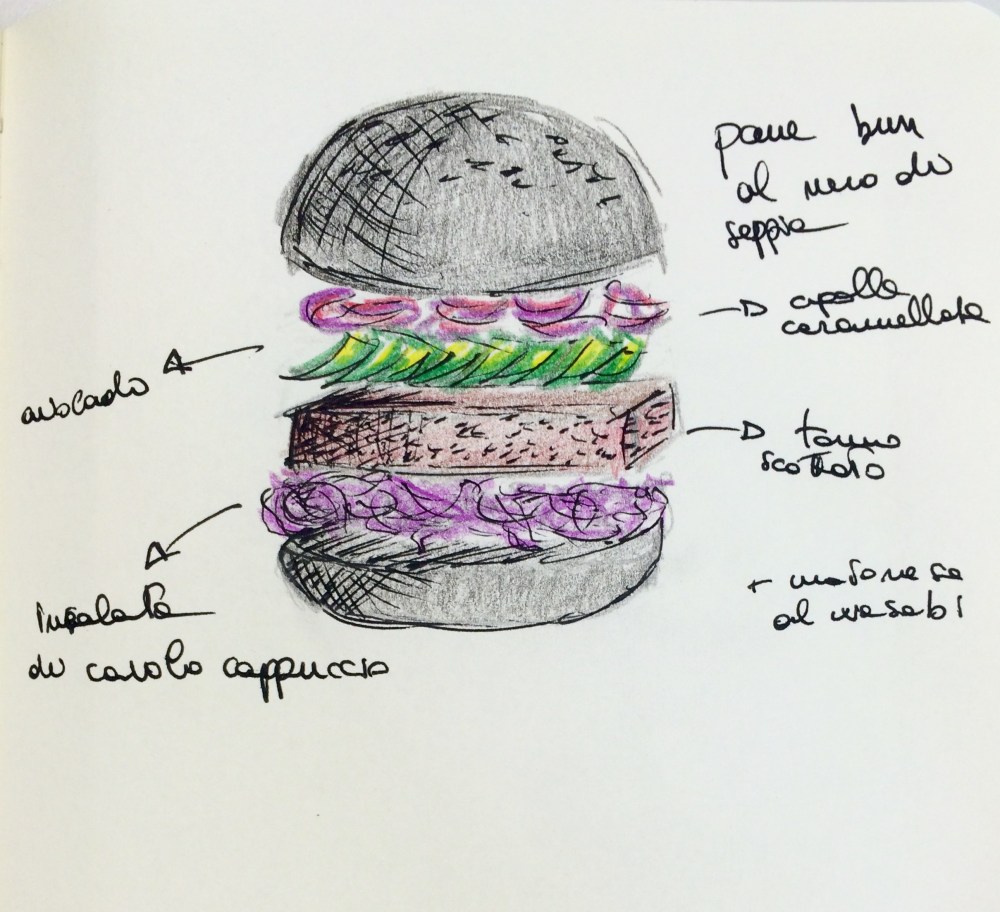 pane bun
al nero di
seppia
cipolla
caramellata
avocado
tonno
scottato
+ maionese
al wasabi
insalata
di cavolo cappuccio